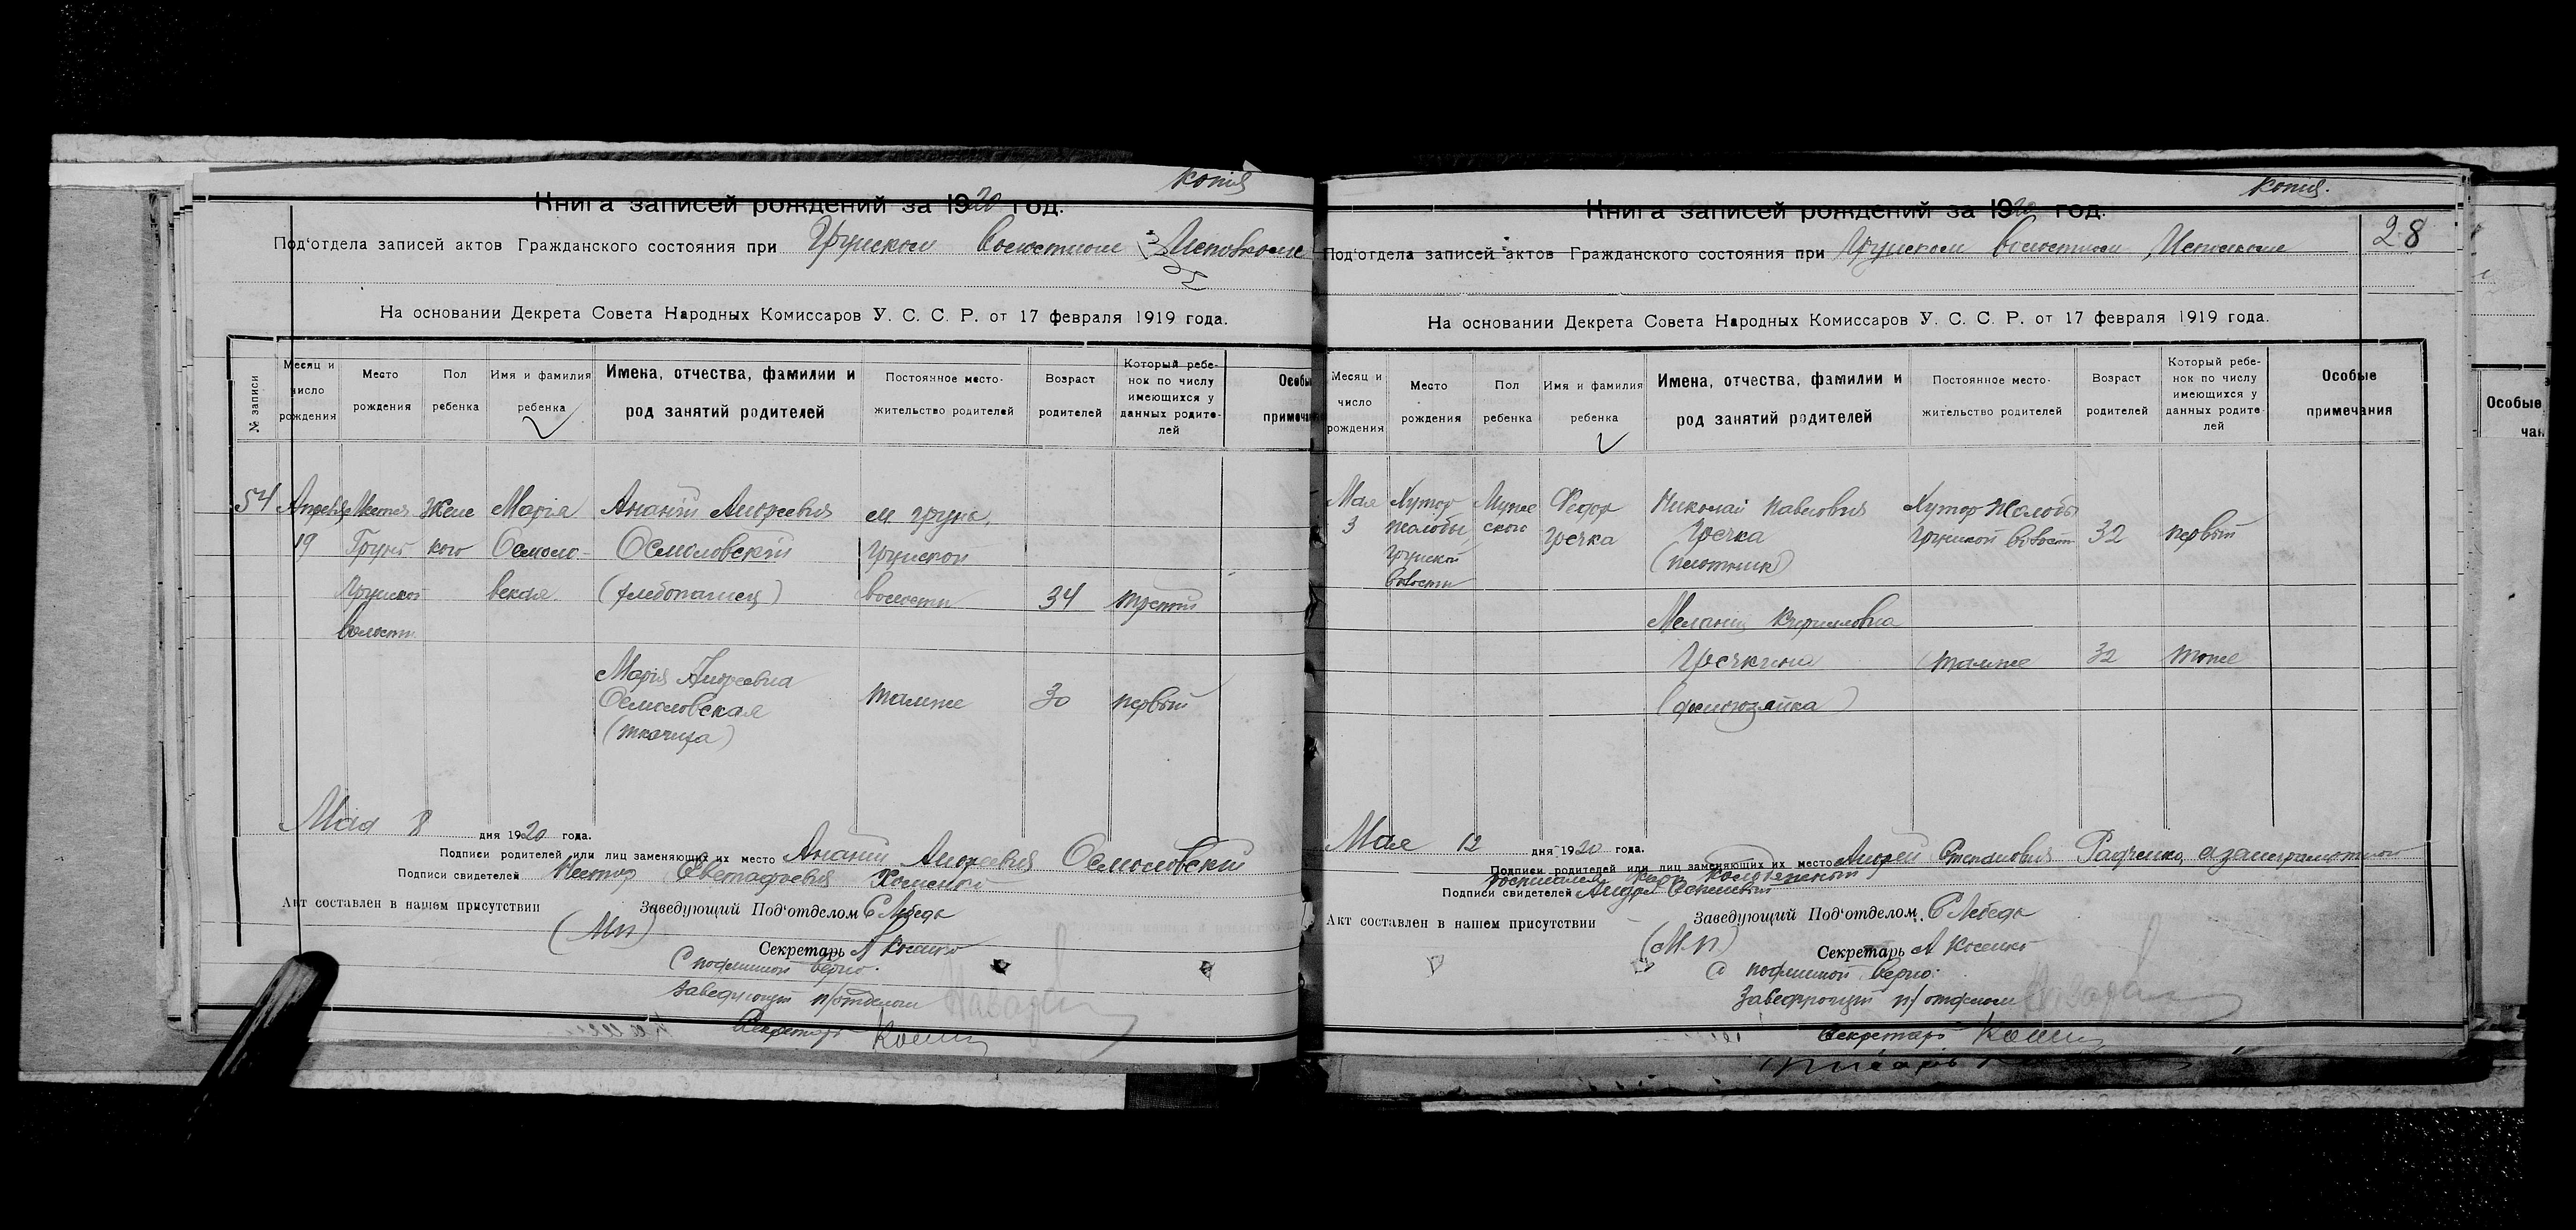 копия
Книга записей рождений за 1920 год.
Под'отдела записей актов Гражданского состояния при Грунском Волостном Исполкоме
На основании Декрета Совета Народных Комиссаров У. С. С. Р. от 17 февраля 1919 года.
№ записи
Месяц и число рождения
Место рождения
Пол ребенка
Имя и фамилия ребенка
Имена, отчества, фамилии и род занятий родителей
Постоянное место-жительство родителей
Возраст родителей
Который ребе-нок по числу имеющихся у данных родите-лей
Особы
примеча
54
Апреля
19
Местеч
Грунь
Грунской
волости
Жене
кого
Марія
Осмоло-
вская
Ананій Андреевич
Осмоловскій
(хлебопашец)
м Грунь,
Грунской
волости
34
третий
Марія Андреевна
Осмоловская
(ткачиха)
тамже
30
первый
Мая 8 дня 1920 года.
Подписи родителей или лиц заменяющих их место Ананий Андреевич Осмоловский
Подписи свидетелей Нестор
Акт составлен в нашем присутствии
Заведующий Под'отделом Лебедь
(МП)
Секретарь А Косенко
С подлинной верно.
Заведующий п/отделом
Секретарь
копия.
28
Книга записей рождений за 1920 год.
Под'отдела записей актов Гражданского состояния при Грунском Волостном Исполкоме
На основании Декрета Совета Народных Комиссаров У. С. С. Р. от 17 февраля 1919 года.
Месяц и число рождения
Место рождения
Пол ребенка
Имя и фамилия ребенка
Имена, отчества, фамилии и род занятий родителей
Постоянное место-жительство родителей
Возраст родителей
Который ребе-нок по числу имеющихся у данных родите-лей
Особые примечания
Мая
3
Хутор
Жолобы
Грунской
волости
Мужс
ского
Федор
Гречка
Николай Павлович
Гречка
(плотник)
Хутор Жолобы
Грунской волости
32
первый
Меланія Кирилловна
Гречкина
(домохозяйка)
тамже
32
тоже
Мая 12 дня 1920 года.
Подписи родителей или лиц заменяющих их место Андрей Степанович Радченко, а за неграмотного
росписался
Подписи свидетелей Андрей
Акт составлен в нашем присутствии
Заведующий Под'отделом Лебедь
(М.П.)
Секретарь А Косенко
С подлинной верно:
Заведующий п/отделом
Секретарь
Особые
чан